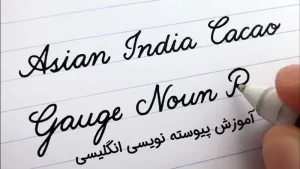 Asian India Cacao
Gauge Noun R
آموزش پیوسته نویسی انگلیسی